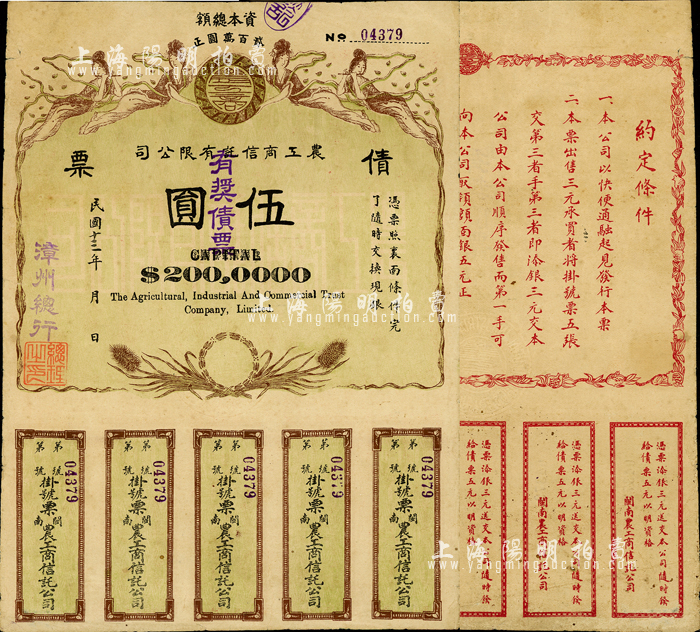 資本總額
貳百萬圓正
No 04379
農工商信託有限公司
債票
伍圓
有獎債票
憑票照裏面條件完
了隨時交換現銀
民國十三年 月 日
CAPITAL
$200,0000
The Agricultural, Industrial And Commercial Trust
Company, Limited.
漳州總行
約定條件
一、本公司以快便通融起見發行本票
二、本票出售三元承買者將掛號票五張
交第三者手第三者即添銀三元交本
公司由本公司順序發售而第一手可
向本公司取領額面銀五元正
第 號
掛號票
閩南農工商信託公司
04379
第 號
掛號票
閩南農工商信託公司
04379
第 號
掛號票
閩南農工商信託公司
04379
第 號
掛號票
閩南農工商信託公司
04379
第 號
掛號票
閩南農工商信託公司
04379
憑票添銀三元送交本公司隨時發
給債票五元以明資格
閩南農工商信託公司
憑票添銀三元送交本公司隨時發
給債票五元以明資格
閩南農工商信託公司
憑票添銀三元送交本公司隨時發
給債票五元以明資格
上海陽明拍賣
www.yangmingauction.com
上海陽明拍賣
www.yangmingauction.com
上海陽明拍賣
www.yangmingauction.com